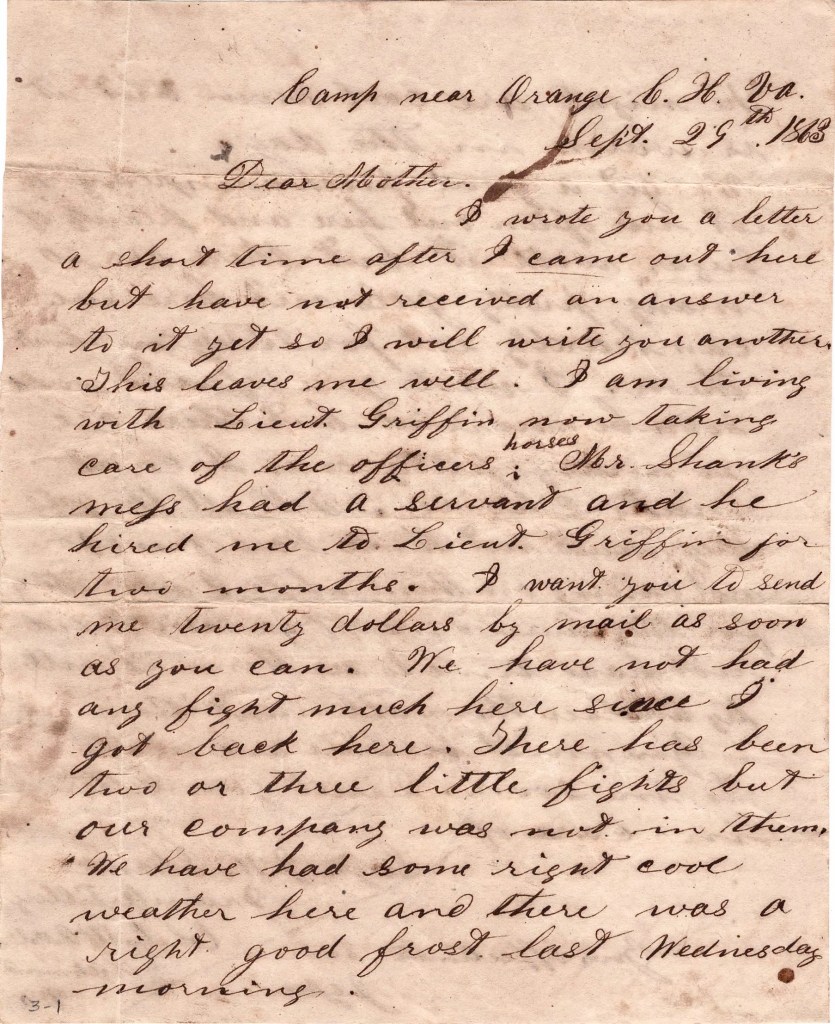 Camp near Orange C. H. Va.
Sept. 29th. 1863
Dear Mother.
I wrote you a letter
a short time after I came out here
but have not received an answer
to it yet so I will write you another.
This leaves me well. I am living
with Lieut. Griffin now taking
horses
care of the officers; Mr. Shank's
mess had a servant and he
hired me to Lieut. Griffin for
two months. I want you to send
me twenty dollars by mail as soon
as you can. We have not had
any fight much here since I
got back here. There has been
two or three little fights but
our company was not in them.
We have had some right cool
weather here and there was a
right good frost last Wednesday
morning.
3-1